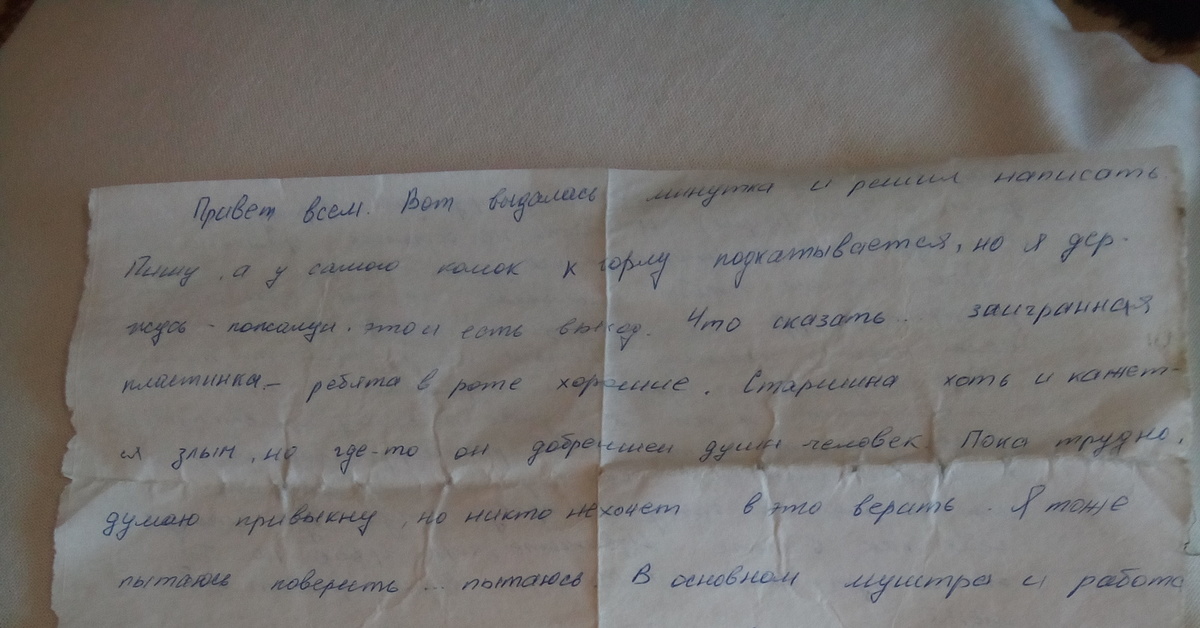 Привет всем. Вот выдалась минутка и решил написать.
Пишу, а у самого комок к горлу подкатывается, но я дер-
жусь - пожалуй этой есть выход. Что сказать... заигранная
пластинка - ребята в роте хорошие. Старшина хоть и кажет-
ся злын, но где-то он добрейшей души человек. Пока трудно,
думаю привыкну, но никто не хочет в это верить. Я тоже
пытаюсь поверить... пытаюсь. В основном муштра и работа